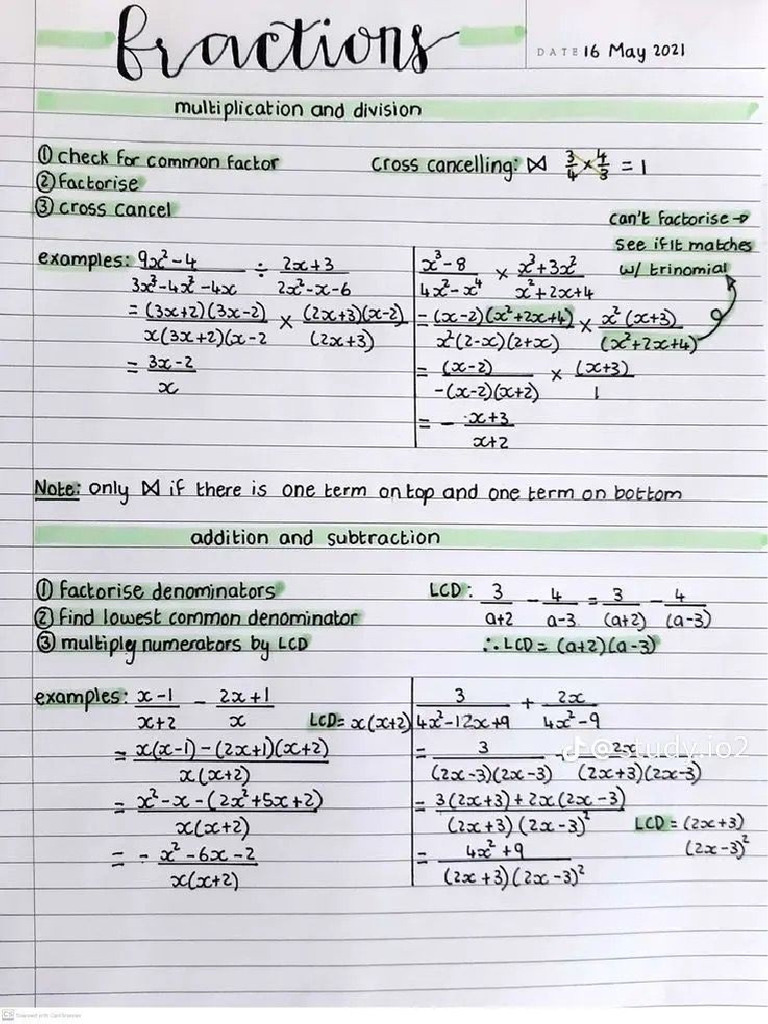 fractions
DATE 16 May 2021
multiplication and division
① check for common factor
② factorise
③ cross cancel
cross cancelling: ⋈ 3/4 × 4/3 = 1
can't factorise →
see if it matches
w/ trinomial
examples: (9x²-4)/(3x³-4x²-4x) ÷ (2x+3)/(2x²-x-6)
= (3x+2)(3x-2)/x(3x+2)(x-2 × (2x+3)(x-2)/(2x+3)
= (3x-2)/x
(x³-8)/(4x²-x⁴) × (x³+3x²)/(x²+2x+4)
= (x-2)(x²+2x+4)/x²(2-x)(2+x) × x²(x+3)/(x²+2x+4)
= (x-2)/-(x-2)(x+2) × (x+3)/1
= - (x+3)/(x+2)
Note: only ⋈ if there is one term on top and one term on bottom
addition and subtraction
① factorise denominators
② find lowest common denominator
③ multiply numerators by LCD
LCD: 3/(a+2) - 4/(a-3) = 3/(a+2) - 4/(a-3)
∴ LCD = (a+2)(a-3)
examples: (x-1)/(x+2) - (2x+1)/x
LCD = x(x+2)
= x(x-1)-(2x+1)(x+2)/x(x+2)
= x²-x-(2x²+5x+2)/x(x+2)
= - x²-6x-2/x(x+2)
3/(4x²-12x+9) + 2x/(4x²-9)
= 3/(2x-3)(2x-3) + 2x/(2x+3)(2x-3)
= 3(2x+3)+2x(2x-3)/(2x+3)(2x-3)²
LCD = (2x+3)
(2x-3)²
= 4x²+9/(2x+3)(2x-3)²
@study.io2
CS Scanned with CamScanner